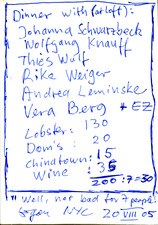 Dinner with (at Loft):
Johanna Schwarzbeck
Wolfgang Knauff
Thies Wulf
Rike Weiger
Andrea Leminske
Vera Berg + EZ
Lobster: 130
Dom's: 20
Chinatown: 15
Wine: 35
200 :7=30
"Well, not bad for 7 people"
NYC 20 VIII 05